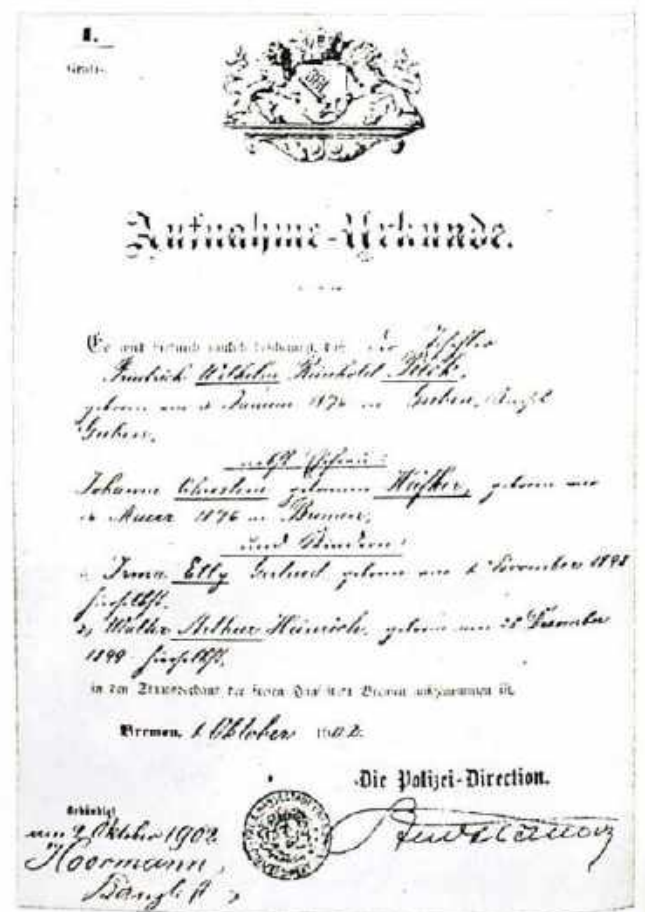 1.
Gratis.
Aufnahme-Urkunde.
Es wird hiermit bescheinigt, daß der Tischler
Friedrich Wilhelm Reinhold Pieck,
geboren am Januar 1876 in Guben,
Guben,
nebst Ehefrau:
Johanne Christine geborenen Häfker, geboren am
1876 in Bremen,
und Kindern:
Elly geboren am November 1898
hierselbst.
2, Walter Arthur Heinrich, geboren am 28 Dezember
1899 hierselbst.
in den Staatsverband der freien Hansestadt Bremen aufgenommen ist.
Bremen, Oktober 1902.
Die Polizei-Direction.
Behändigt
am 9 Oktober 1902
Hoormann,